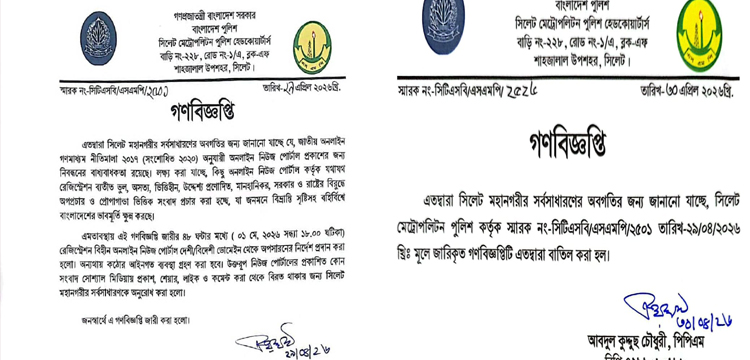 গণপ্রজাতন্ত্রী বাংলাদেশ সরকার
বাংলাদেশ পুলিশ
সিলেট মেট্রোপলিটন পুলিশ হেডকোয়ার্টার্স
বাড়ি নং-২২৮, রোড নং-১/এ, ব্লক-এফ
শাহজালাল উপশহর, সিলেট।
স্মারক নং-সিটিএসবি/এসএমপি/২৫০১ তারিখ-২৯ এপ্রিল ২০২৬খ্রি.
গণবিজ্ঞপ্তি
এতদ্বারা সিলেট মহানগরীর সর্বসাধারণের অবগতির জন্য জানানো যাচ্ছে যে, জাতীয় অনলাইন
গণমাধ্যম নীতিমালা ২০১৭ (সংশোধিত ২০২০) অনুযায়ী অনলাইন নিউজ পোর্টাল প্রকাশের জন্য
নিবন্ধনের বাধ্যবাধকতা রয়েছে। লক্ষ্য করা যাচ্ছে, কিছু অনলাইন নিউজ পোর্টাল কর্তৃক যথাযথ
রেজিস্ট্রেশন ব্যতীত ভুল, অসত্য, ভিত্তিহীন, উদ্দেশ্য প্রণোদিত, মানহানিকর, সরকার ও রাষ্ট্রের বিরুদ্ধে
অপপ্রচার ও প্রোপাগান্ডা ভিত্তিক সংবাদ প্রচার করা হচ্ছে, যা জনমনে বিভ্রান্তি সৃষ্টিসহ বহির্বিশ্বে
বাংলাদেশের ভাবমূর্তি ক্ষুন্ন করছে।
এমতাবস্থায় এই গণবিজ্ঞপ্তি জারীর ৪৮ ঘন্টার মধ্যে ( ০১ মে, ২০২৬ সন্ধ্যা ১৮.০০ ঘটিকা)
রেজিস্ট্রেশন বিহীন অনলাইন নিউজ পোর্টাল দেশী/বিদেশী ডোমেইন থেকে অপসারনের নির্দেশ প্রদান করা
হলো। অন্যথায় কঠোর আইনগত ব্যবস্থা গ্রহণ করা হবে। উক্তরূপ নিউজ পোর্টালের প্রকাশিত কোন
সংবাদ সোশ্যাল মিডিয়ায় প্রকাশ, শেয়ার, লাইক ও কমেন্ট করা থেকে বিরত থাকার জন্য সিলেট
মহানগরীর সর্বসাধারণকে অনুরোধ করা হলো।
জনস্বার্থে এ গণবিজ্ঞপ্তি জারী করা হলো।
২৯/০৪/২৬
বাংলাদেশ পুলিশ
সিলেট মেট্রোপলিটন পুলিশ হেডকোয়ার্টার্স
বাড়ি নং-২২৮, রোড নং-১/এ, ব্লক-এফ
শাহজালাল উপশহর, সিলেট।
স্মারক নং-সিটিএসবি/এসএমপি/ তারিখ-৩০ এপ্রিল ২০২৬খ্রি.
গণবিজ্ঞপ্তি
এতদ্বারা সিলেট মহানগরীর সর্বসাধারণের অবগতির জন্য জানানো যাচ্ছে, সিলেট
মেট্রোপলিটন পুলিশ কর্তৃক স্মারক নং-সিটিএসবি/এসএমপি/২৫০১ তারিখ-২৯/০৪/২০২৬
খ্রিঃ মূলে জারিকৃত গণবিজ্ঞপ্তিটি এতদ্বারা বাতিল করা হল।
৩০/০৪/২৬
আবদুল কুদ্দুছ চৌধুরী, পিপিএম